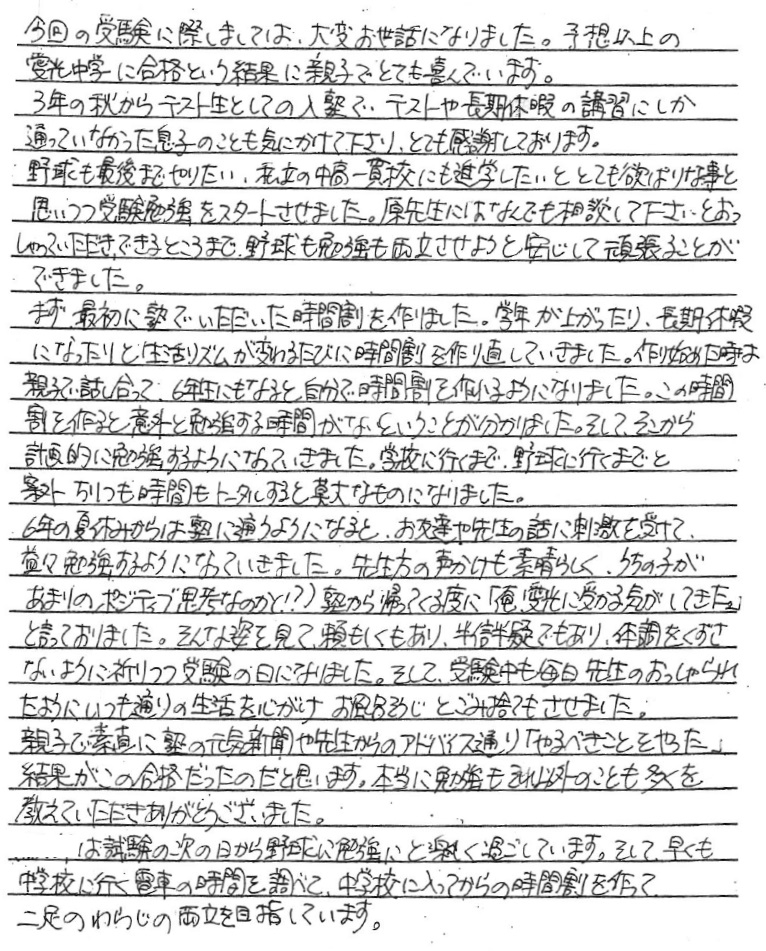 今回の受験に際しましては、大変お世話になりました。予想以上の
愛光中学に合格という結果に親子でとても喜んでいます。
3年の秋からテスト生としての入塾で、テストや長期休暇の講習にしか
通っていなかった息子のことも気にかけて下さり、とても感謝しております。
野球も最後までやりたい、私立の中高一貫校にも進学したいととても欲ばりな事と
思いつつ受験勉強をスタートさせました。原先生にはなんでも相談して下さいとおっ
しゃっていただき、できるところまで、野球も勉強も両立させようと安心して頑張ることが
できました。
まず、最初に塾でいただいた時間割を作りました。学年が上がったり、長期休暇
になったりと生活リズムが変わるたびに時間割を作り直していきました。作り始めた時は
親子で話し合って、6年生にもなると自分で時間割を作れるようになりました。この時間
割を作ると意外と勉強する時間がないということが分かりました。そして、そこから
計画的に勉強するようになっていきました。学校に行くまで、野球に行くまでと
案外ちりつも時間もトータルすると莫大なものになりました。
6年の夏休みからは塾に通うようになると、お友達や先生の話に刺激を受けて、
益々勉強するようになっていきました。先生方の声かけも素晴らしく、うちの子が
あまりのポジティブ思考なのかと(!?)塾から帰ってくる度に「俺、愛光に受かる気がしてきた。」
と言っておりました。そんな姿を見て、頼もしくもあり、半信半疑でもあり、体調をくずさ
ないように祈りつつ受験の日になりました。そして、受験中も毎日先生のおっしゃられ
たようにいつも通りの生活を心がけ お風呂そうじとごみ捨てもさせました。
親子で素直に塾の元気新聞や先生からのアドバイス通り「やるべきことをやった」
結果がこの合格だったのだと思います。本当に勉強もそれ以外のことも多くを
教えていただきありがとうございました。
は試験の次の日から野球に勉強にと楽しく過ごしています。そして、早くも
中学校に行く電車の時間を調べて、中学校に入ってからの時間割を作って
二足のわらじの両立を目指しています。